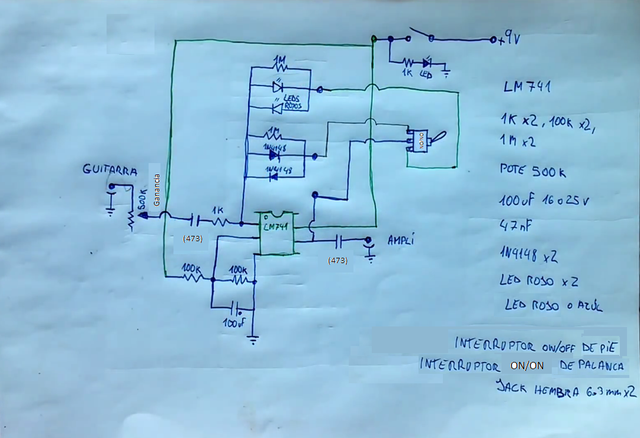 +9V
1K LED
1M
LEDS
ROJOS
1M
1N4148
1N4148
ON/ON
GUITARRA
500K
Ganancia
1K
(473)
LM741
AMPLI
(473)
100K
100K
100uF
LM741
1K x2, 100K x2,
1M x2
POTE 500K
100uF 16 o 25V
47nF
1N4148 x2
LED ROJO x2
LED ROJO o AZUL
INTERRUPTOR ON/OFF DE PIE
INTERRUPTOR ON/ON DE PALANCA
JACK HEMBRA 6.3mm x2